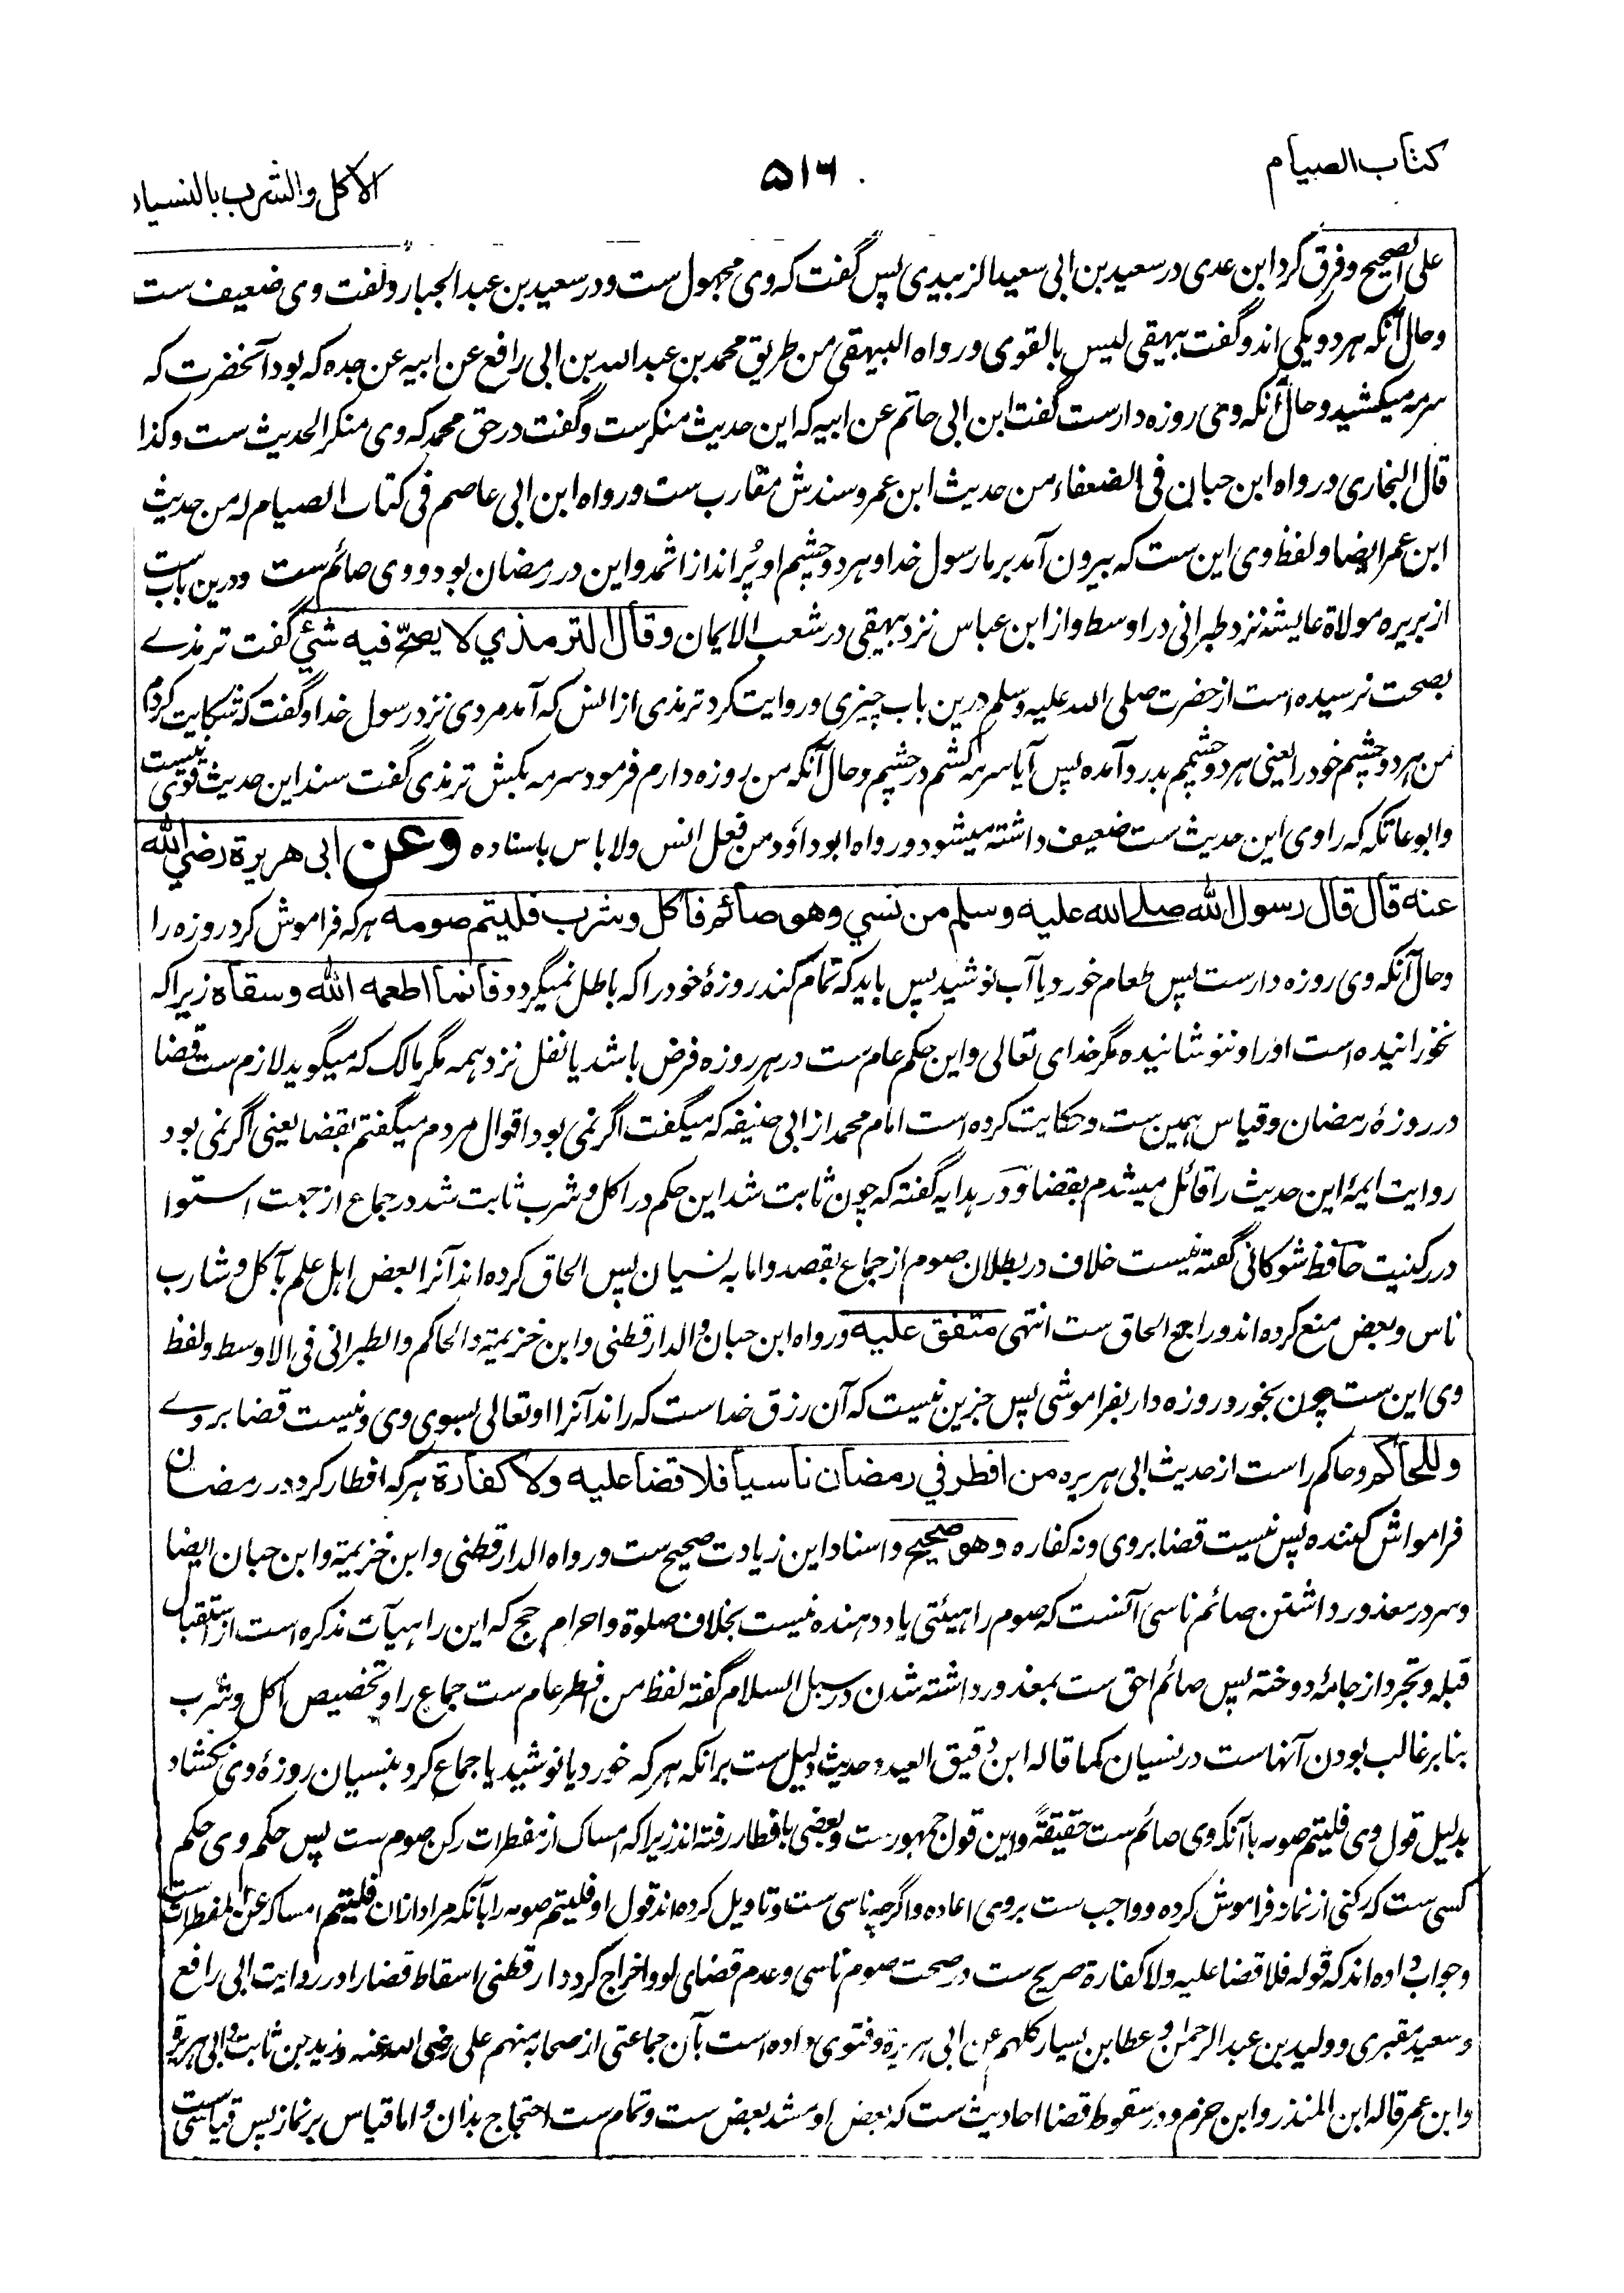 کتاب الصیام
۵۱۶
الاکل والشرب بالنسیا
علی الصحیح وفرق کرد ابن عدی در سعید بن ابی سعید الزبیدی پس گفت که وی مجهول ست و در سعید بن عبد الجبار و گفت وی ضعیف ست
و حال آنکه هر دو یکی اند و گفت بیهقی لیس بالقوی و رواه البیهقی من طریق محمد بن عبد الله بن ابی رافع عن ابیه عن جده که بود آنحضرت که
سرمه میکشید و حال آنکه وی روزه دارست گفت ابن ابی حاتم عن ابیه که این حدیث منکرست و گفت در حق محمد که وی منکر الحدیث ست و کذا
قال البخاری و رواه ابن حبان فی الضعفاء من حدیث ابن عمر و سندش مقارب ست و رواه ابن ابی عاصم فی کتاب الصیام له من حدیث
ابن عمر ایضا و لفظ وی این ست که بیرون آمد بر ما رسول خدا و هر دو چشم او پُر اند از اثمد و این در رمضان بود و وی صائم ست و درین باب ست
از بریره مولاة عایشه نزد طبرانی در اوسط و از ابن عباس نزد بیهقی در شعب الایمان وقال الترمذي لا یصحّ فیه شئ گفت ترمذے
بصحت نرسیده است از حضرت صلی الله علیه وسلم درین باب چیزی و روایت کرد ترمذی از انس که آمد مردی نزد رسول خدا و گفت که شکایت کردم
من هر دو چشم خود را یعنی هر دو چشمم بدرد آمده پس آیا سرمه کشم در چشم و حال آنکه من روزه دارم فرمود سرمه بکش ترمذی گفت سند این حدیث قوی نیست
و ابو عاتکه که راوی این حدیث ست ضعیف داشته میشود و رواه ابو داؤد من فعل انس ولا باس باسناده وعن ابی هریرة رضي الله
عنه قال قال رسول الله صلے الله علیه وسلم من نسي وهو صائم فاکل وشرب فلیتم صومه هر که فراموش کرد روزه را
و حال آنکه وی روزه دارست پس طعام خورد یا آب نوشید پس باید که تمام کند روزۀ خود را که باطل نمیگردد فانما اطعمه الله وسقاه زیراکه
نخورانیده است او را و ننوشانیده مگر خدای تعالی و این حکم عام ست در هر روزه فرض باشد یا نفل نزد همه مگر مالک که میگوید لازم ست قضا
در روزۀ رمضان و قیاس همین ست و حکایت کرده است امام محمد از ابی حنیفه که میگفت اگر نمی بود اقوال مردم میگفتم بقضا یعنی اگر نمی بود
روایت ایمۀ این حدیث را قائل میشدم بقضا و در هدایه گفته که چون ثابت شد این حکم در اکل و شرب ثابت شد در جماع از جهت استوا
در رکنیت حافظ شوکانی گفته نیست خلاف در بطلان صوم از جماع بقصد و اما به نسیان پس الحاق کرده اند آنرا بعض اهل علم بآکل و شارب
ناس و بعض منع کرده اند و راجح الحاق ست انتهی متفق علیه و رواه ابن حبان و الدارقطنی و ابن خزیمة والحاکم والطبرانی فی الاوسط و لفظ
وی این ست چون بخورد روزه دار بفراموشی پس جزین نیست که آن رزق خداست که راند آنرا او تعالی بسوی وی و نیست قضا بر وے
وللحاکم و حاکم راست از حدیث ابی هریره من افطر في رمضان ناسیا فلا قضا علیه ولا کفارة هر که افطار کرد در رمضان
فراموش کننده پس نیست قضا بر وی و نه کفاره وهو صحیح و اسناد این زیادت صحیح ست و رواه الدارقطنی و ابن خزیمة و ابن حبان ایضا
و سر در معذور داشتن صائم ناسی آنست که صوم را هیئتی یاد دهنده نیست بخلاف صلوة و احرام حج که این را هیآت مذکره است از استقبال
قبله و تجرد از جامۀ دوخته پس صائم احق ست بمعذور داشته شدن در سبل السلام گفته لفظ من افطر عام ست جماع را و تخصیص اکل و شرب
بنا بر غالب بودن آنهاست در نسیان کما قاله ابن دقیق العید و حدیث دلیل ست بر آنکه هر که خورد یا نوشید یا جماع کرد بنسیان روزۀ وی نکشاد
بدلیل قول وی فلیتم صومه با آنکه وی صائم ست حقیقةً و این قول جمهورست و بعضی بافطار رفته اند زیراکه امساک از مفطرات رکن صوم ست پس حکم وی حکم
کسی ست که رکنی از نماز فراموش کرده و واجب ست بر وی اعاده و اگرچه ناسی ست و تاویل کرده اند قول او فلیتم صومه را بآنکه مراد از ان فلیتم امساکه عن المفطرات ست
و جواب داده اند که قوله فلا قضا علیه ولا کفارة صریح ست در صحت صوم ناسی و عدم قضای او و اخراج کرد دارقطنی اسقاط قضا را در روایت ابی رافع
و سعید مقبری و ولید بن عبد الرحمن و عطا بن یسار کلهم عن ابی هریرة و فتوی داده است بآن جماعتی از صحابه منهم علی رضی الله عنه و زید بن ثابت و ابی هریرة
و ابن عمر قاله ابن المنذر و ابن حزم و در سقوط قضا احادیث ست که بعض او مشد بعض ست و تمام ست احتجاج بدان و اما قیاس بر نماز پس قیاسی ست